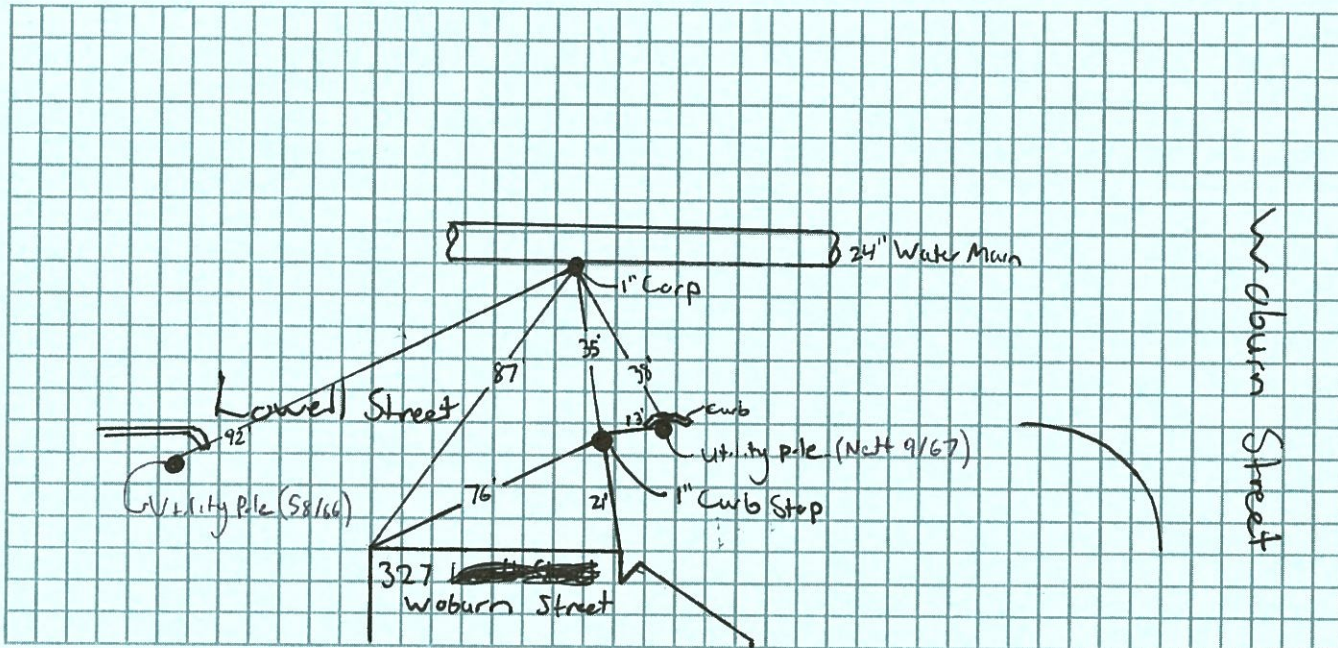 24" Water Main
1" Corp
87'
35'
38'
Lowell Street
92'
13'
curb
Utility Pole (58/66)
76'
21'
Utility pole (Nett 9/67)
1" Curb Stop
327
Woburn Street
Woburn Street